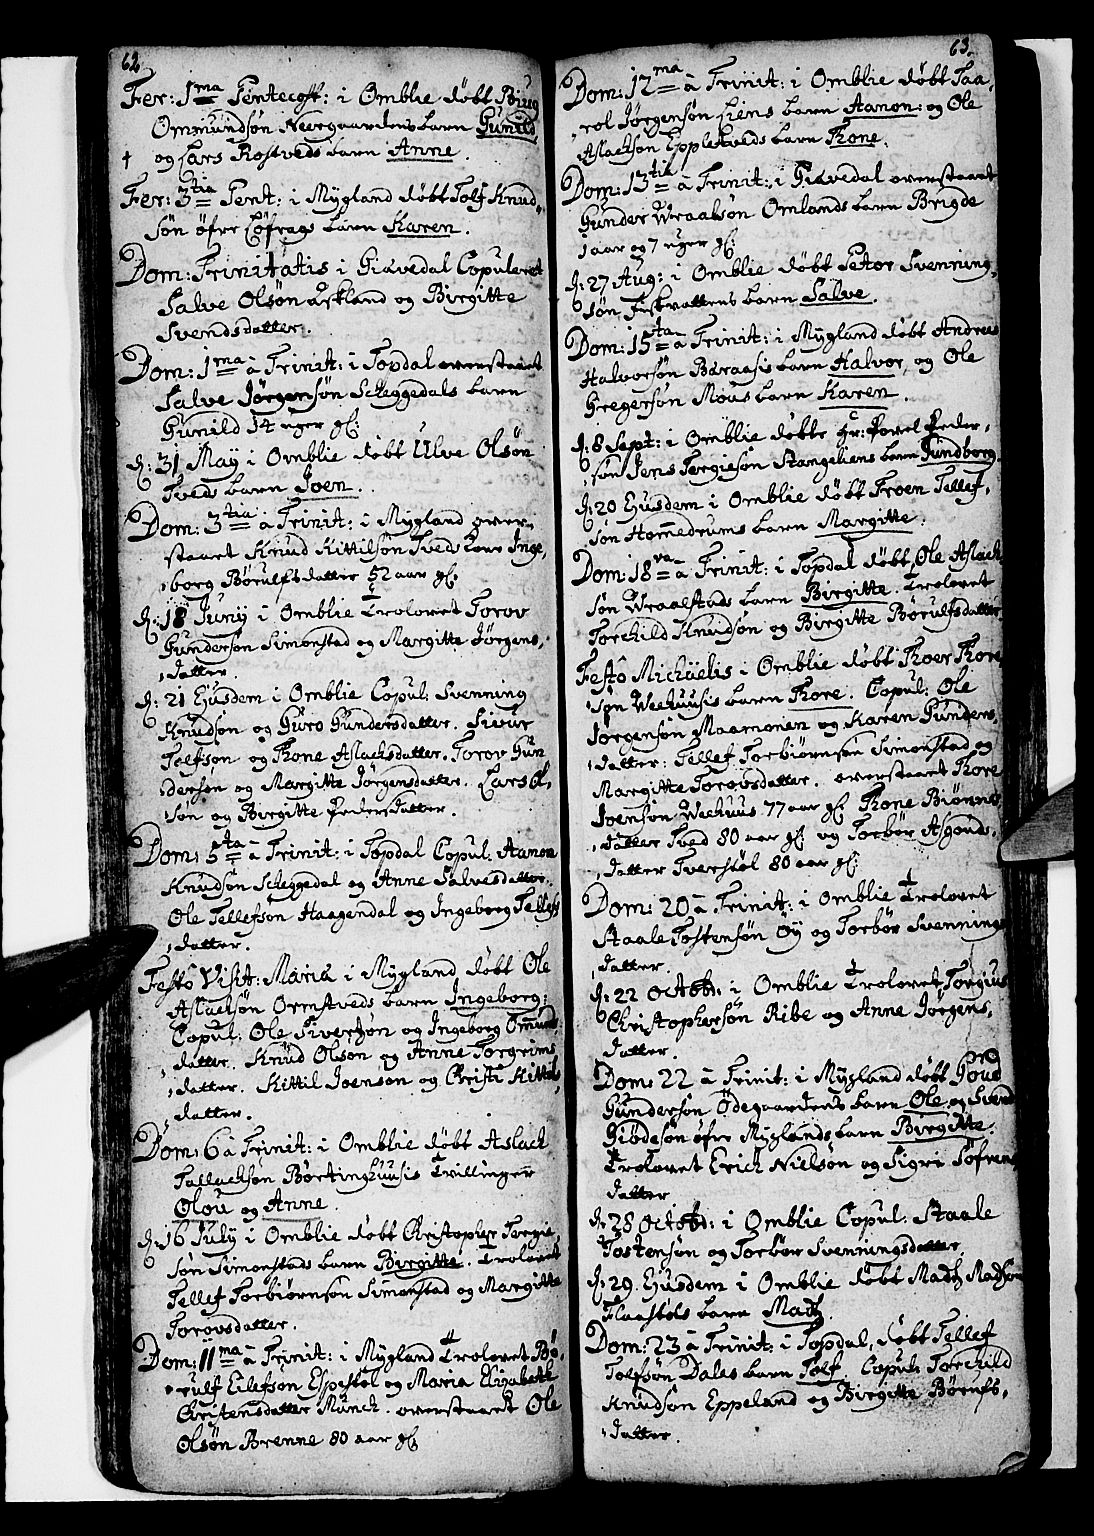 62
Fer: 1ma Pentecost: i Omblie døbt Biug
Ommundsøn Neergaardens barn Gunild,
† og Lars Rostveds barn Anne.
Fer: 3tia Pent: i Mygland døbt Tolf Knud„
søn øfre Løfrags barn Karen.
Dom: Trinitatis i Giævedal Copuleret
Salve Olsøn Askland og Birgitte
Svendsdatter.
Dom: 1ma à Trinit: i Topdal overstaaet
Salve Jørgensøn Scheggedals barn
Gunild 14 uger gl:
d: 31 May i Omblie døbt Ulve Olsøn
Tveds barn Joen.
Dom: 3tia à Trinit: i Mygland over„
staaet Knud Kittilsøn Tveds Inge„
„borg Børulfsdatter 52 aar gl:
d: 18 Junij i Omblie Trolovet Torov
Gundersøn Simonstad og Margitte Jørgens„
„datter.
d: 21 Ejusdem i Omblie Copul: Svenning
Knudsøn og Guro Gundersdatter. Sivur
Tolfsøn og Thone Aslacksdatter. Torov Gun
dersøn og Margitte Jørgensdatter. Lars Ol„
søn og Birgitte Pedersdatter.
Dom: 5ta à Trinit: i Topdal Copul: Aanon
Knudsøn Scheggedal og Anne Salvesdatter.
Ole Tellefsøn Haagendal og Ingeborg Tellefs
„datter.
Festo Visit: Mariæ i Mygland døbt Ole
Aslacksøn Ormstveds barn Ingeborg:
Copul: Ole Sivertsøn og Ingeborg Omunds
„datter. Knud Olsøn og Anne Torgrims
„datter. Kittil Joensøn og Christi Kittils
„datter.
Dom: 6 à Trinit: i Omblie døbt Aslack
Tallacksøn Børtinghuusis Tvillinger
Olou og Anne.
d: 16 July i Omblie døbt Christopher Tergie„
søn Simonstads barn Birgitte. Trolovet
Tellef Torbiørnsøn Simonstad og Margitte
Torovsdatter.
Dom: 11ma à Trinit: i Mygland Trolovet Bø„
„rulf Eilefsøn Espestøl og Maria Elizabeth
Christensdatter Munck. overstaaet Ole
Olsøn Brenne 80 aar gl:
63.
Dom: 12ma à Trinit: i Omblie døbt Taa„
„rol Jørgensøn Liens barn Aanon: og Ole
Aslacksøn Eppletveds barn Thone.
Dom: 13tia à Trinit: i Giævedal overstaaet
Gunder Wraalsøn Omlands barn Brigde
1 aar og 7 uger gl:
d: 27 Aug: i Omblie døbt Petor Svenning„
søn Fiskvattens barn Salve.
Dom: 15ta à Trinit: i Mygland døbt Andreas
Halvorsøn Baraasis barn Halvor, og Ole
Gregersøn Mous barn Karen.
d: 8 Sept: i Omblie døbte Hr: Povel Peder„
„søn Jens Tergiesøn Stangeliens barn Gundborg.
d: 20 Ejusdem i Omblie døbt Troen Tellef„
søn Hommedrums barn Margitte.
Dom: 18va à Trinit: i Topdal døbt Ole Aslack
søn Wraalstads barn Birgitte. Trolovet
Torchild Knudsøn og Birgitte Børulfsdatter
Festo Michaelis i Omblie døbt Thoer Thore
søn Weehuusis barn Thore. Copul: Ole
Jørgensøn Maamonen og Karen Gunders„
„datter: Tellef Torbiørnsøn Simonstad og
Margitte Torovsdatter. overstaaet Thore
Joensøn Weehuus 77 aar gl: Thone Biønns
„datter Tved 80 aar gl: og Torbør Asgouds„
„datter Tverstøl 80 aar gl:
Dom: 20 à Trinit: i Omblie Trolovet
Staale Tostensøn Øy og Torbør Svennings
„datter.
d: 22 Octobr: i Omblie Trolovet Torgius
Christophersøn Ribe og Anne Jørgens„
„datter.
Dom: 22 à Trinit: i Mygland døbt Goue
Gundersøn Ødegaardens barn Ole, og Svend
Giødesøn øfre Myglands barn Birgitte.
Trolovet Erich Nielsøn og Sigri Søfrens
„datter
d: 28 Octobr: i Omblie Copul: Staale
Tostensøn og Torbør Svenningsdatter.
d: 29. Ejusdem i Omblie døbt Madtz Madsøn
Flaastøls barn Madtz.
Dom: 23 à Trinit: i Topdal, døbt Tellef
Tolfsøn Dales barn Tolf. Copul: Torchild
Knudsøn Eppeland og Birgitte Børufs„
„datter.